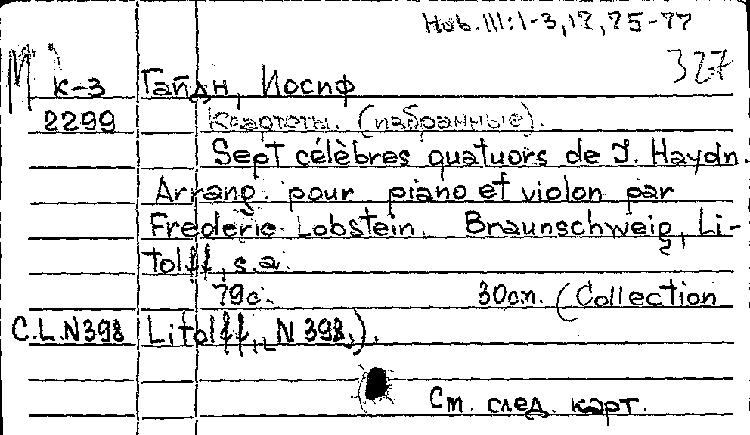 Hob. III: 1-3, 17, 75-77
327
М
к-3 Гайдн, Иосиф
2299 Квартеты. (избранные).
Sept célèbres quatuors de J. Haydn.
Arrang. pour piano et violon par
Frederic Lobstein. Braunschweig, Li-
tolff, s.a.
79с. 30cm. (Collection
C.L.N398 Litolff, N 398.).
См. след. карт.